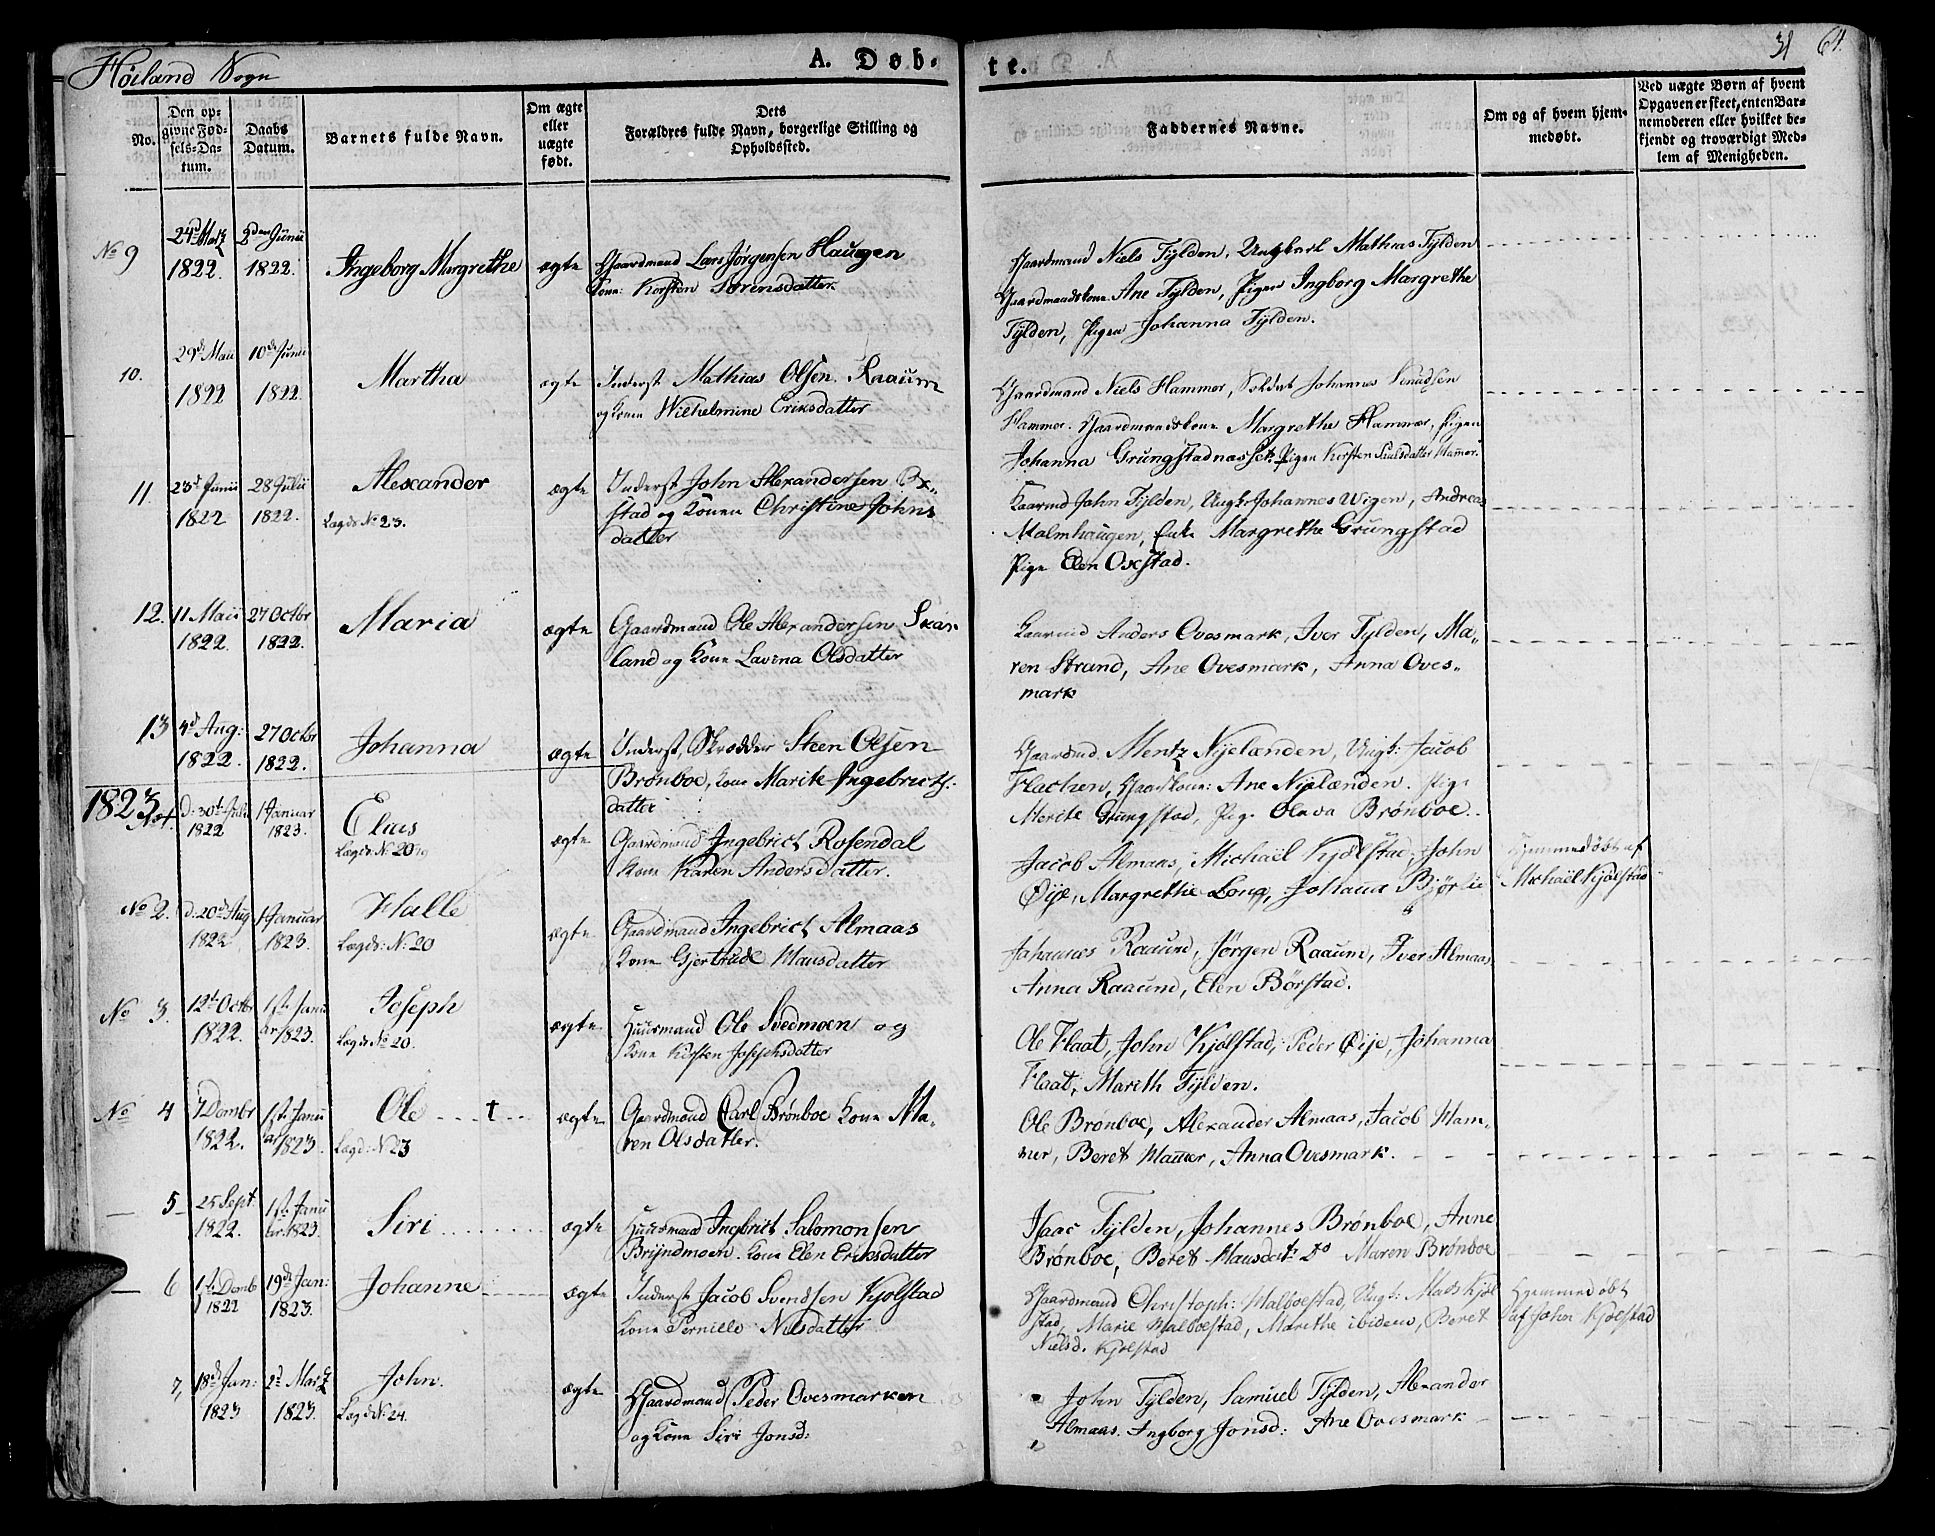 Høiland Sogn
A. Døb-
te.
31 64.
No.
Den op-
givne Fød-
sels-Da-
tum.
Daabs
Datum.
Barnets fulde Navn.
Om ægte
eller
uægte
født.
Dets
Forældres fulde Navn, borgerlige Stilling og
Opholdssted.
Faddernes Navne.
Om og af hvem hjem-
medøbt.
Ved uægte Børn af hvem
Opgaven er skeet, enten Bar-
nemoderen eller hvilket be-
kjendt og troværdigt Med-
lem af Menigheden.
No 9
24d Martz
1822
2den Junii
1822.
Ingeborg Margrethe
ægte
Gaardmand Lars Jørgensen Haugen
Kone: Kersten Sørensdatter
Gaardmand Niels Tylden, Ungkarl Mathias Tylden
Gaardmandskone Ane Tylden, Pigen Ingborg Margrethe
Tylden, Pigen Johanna Tylden.
10.
29d Maii
1822
10d Junii
1822.
Martha
ægte
Inderst Mathias Olsen Raaum
og Konen Wilhelmine Eriksdatter
Gaardmand Niels Hammer, Soldat Johannes Knudsen
Hammer. Gaardmandskone Margrethe Hammer, Pigen
Johanna Grungstadnasset. Pigen Kersten Paulsdatter Hammer.
11.
23d Junii
1822
28 Julii
1822.
Alexander
Lagds No 23.
ægte
Inderst John Alexandersen Ox-
stad og Konen Christine Johns
datter
Gaarmd John Tylden, Ungk: Johannes Wigen, Andreas
Malmhaugen, Enke Margrethe Grungstad
Pige Elen Oxstad.
12.
11 Maii
1822.
27 Octbr
1822.
Maria
ægte
Gaardmand Ole Alexandersen Skar-
land og Kone Lavina Olsdatter
Gaarmd Anders Ovesmark, Iver Tylden, Ma-
ren Strand, Ane Ovesmark, Anna Oves-
mark
13
4d Aug:
1822.
27 Octbr
1822.
Johanna
ægte
Inderst, Skrædder Steen Olsen
Brønboe, Kone Marite Ingebricts-
datter
Gaardmd Mentz Nyelænden, Ungk: Jacob
Flacken, Gaardkone: Ane Nyelænden. Pige
Merite Grungstad, Pige Olava Brønboe.
1823.
No 1.
D: 30t Julii
1822
1 Januar
1823.
Elias
Lægds No 20
ægte
Gaardmand Ingebrict Rosendal
Kone Karen Andersdatter.
Jacob Almaas, Michaël Kjølstad, John
Øije, Margrethe Long, Johana Bjørlie
Hjemmedøbt af
Michaël Kjølstad
No 2.
D. 20d Aug
1822
1 Januar
1823.
Halle
Lægds: No: 20
ægte
Gaardmand Ingebrict Almaas
Kone Gjertrude Hansdatter
Johannes Raaum, Jørgen Raaum, Iver Almaas
Anna Raaum, Elen Børstad.
No 3.
12t Octbr
1822.
1ste Janu
ar 1823.
Joseph
Lægds No 20.
ægte
Huusmand Ole Svedmoen og
Kone Kirsten Josephsdatter
Ole Flaat, John Kjølstad, Peder Øije, Johanna
Flaat, Marith Tylden.
No 4
7 Decmbr
1822.
1ste Janu
ar 1823.
Ole . . . . t . . .
Lægd: No 23
ægte
Gaardmand Carl Brønboe Kone Ma-
ren Olsdatter.
Ole Brønboe, Alexander Almaas, Jacob Ham-
mer, Beret Hammer, Anna Ovesmark.
5
25 Sept.
1822.
1ste Janu
ar. 1823.
Siri
ægte
Huusmand Ingebrict Salomonsen
Bryndmoen. Kone Elen Eriksdatter
Isaac Tylden, Johannes Brønboe, Anne
Brønboe, Beret Hansdatr Do Maren Brønboe
6
1ste Decmb
1822
19d Jan:
1823.
Johanne
ægte
Inderst Jacob Svendsen Kjølstad
Kone Pernille Nilsdatter
Gaardmand Christoph: Malboestad, Ungk: Mats Kjøl
stad, Marie Malboestad, Marithe ibidem, Beret
Nielsd. Kjølstad
Hjemmedøbt
af John Kjølstad
7,
18d Jan:
1823
2d Martz
1823.
John.
Lægds No: 24.
ægte
Gaardmand Peder Ovesmarken
og Kone Siri Jonsd:
John Tylden, Samuel Tylden, Alexander
Almaas. Ingborg Jonsd: Ane Ovesmark